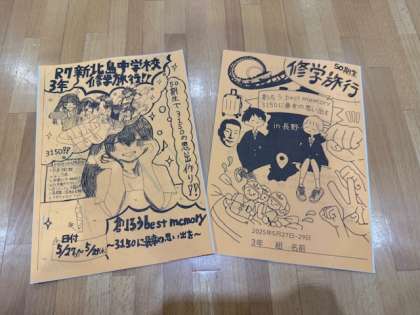 R7 新北島中学校
3年 修学旅行!!
50期生で3150の思い出作り!!
3150部
創ろうbest memory
～3150に最幸の思い出を～
日付
5/27～5/29
50期生
修学旅行
創ろうbest memory
3150に最幸の思い出を
in長野
2025年5月27日-29日
3年 組 名前